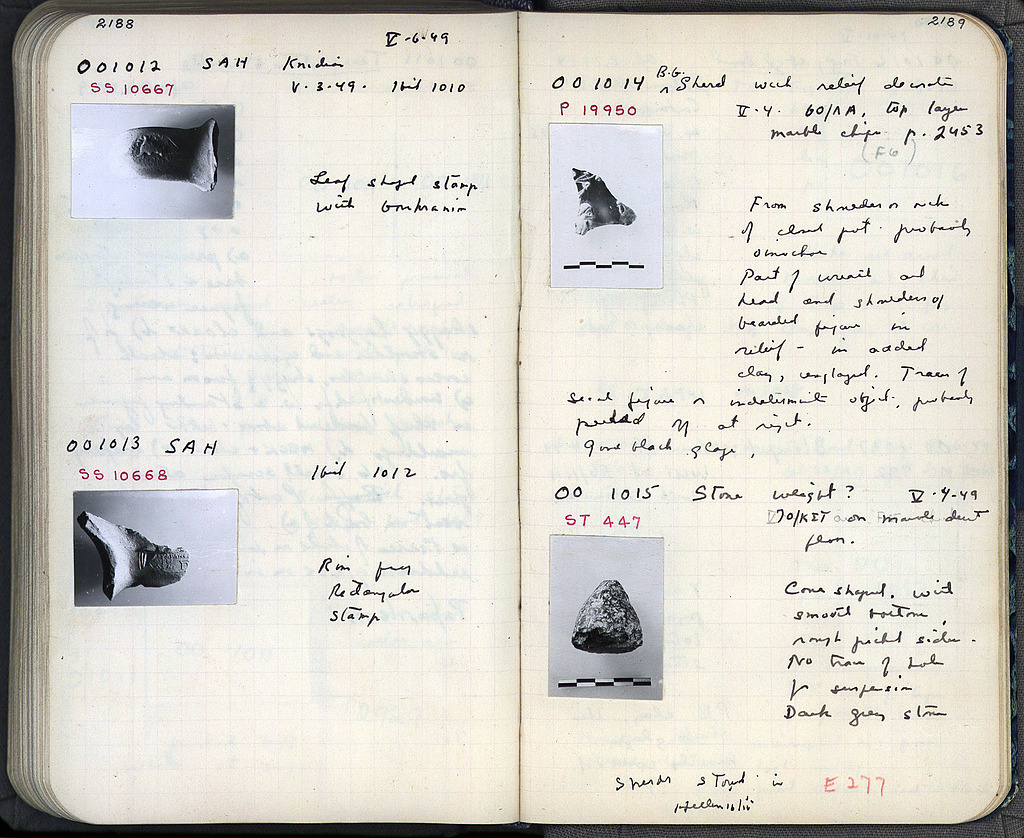 2188
V-6-49
OO 1012 SAH Knidian
SS 10667 V.3.49. Ibid 1010
Leaf shaped stamp
with
OO 1013 SAH
SS 10668 Ibid 1012
Rim frag
Rectangular
Stamp
2189
OO 1014 B.G. Sherd with relief decoration
P 19950 V.4. 60/ΛA, top layer
marble chips p. 2453
(F6)
From shoulder or neck
of closed pot. probably
oinochoe
Part of wreath and
head and shoulders of
bearded figure in
relief - in added
clay, Traces of
second figure or indeterminate object, probably
off at right.
Good black glaze,
OO 1015 Stone weight? V-4-49
ST 447 70/KET on marble dust
floor.
Cone shaped, with
smooth bottom,
rough picked sides.
No trace of hole
for suspension
Dark grey stone
Sherds stored in E 277